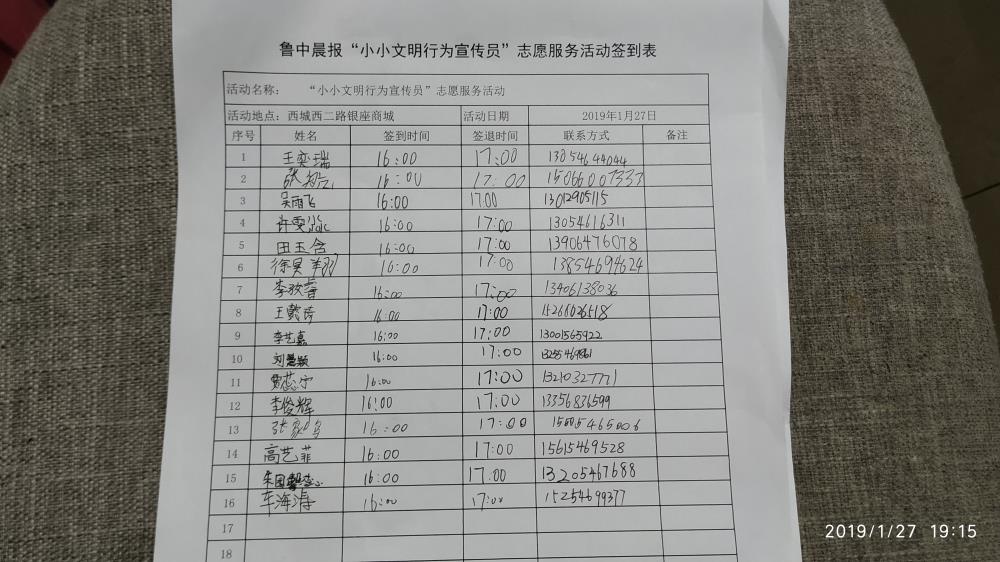 鲁中晨报“小小文明行为宣传员”志愿服务活动签到表
活动名称： “小小文明行为宣传员”志愿服务活动
活动地点：西城西二路银座商城 活动日期 2019年1月27日
序号 姓名 签到时间 签退时间 联系方式 备注
1 王奕瑞 16:00 17:00 13854644044
2 张 16:00 17:00 15066007333
3 吴雨飞 16:00 17:00 13012905115
4 许雯 16:00 17:00 13054616311
5 田玉含 16:00 17:00 13906476078
6 徐昊 16:00 17:00 13854694624
7 李玫睿 16:00 17:00 13406138036
8 王懿 16:00 17:00 15266026518
9 李艺嘉 16:00 17:00 13001565922
10 刘 16:00 17:00
11 贾蕊宁 16:00 17:00 13210327771
12 李俊辉 16:00 17:00 13356836599
13 张 16:00 17:00 15005465006
14 高艺菲 16:00 17:00 15615469528
15 16:00 17:00 13205467688
16 车海清 16:00 17:00 15254699377
17
18
2019/1/27 19:15